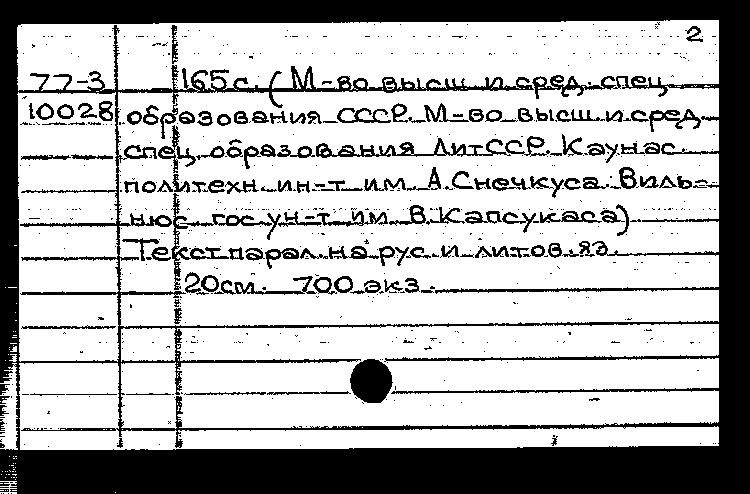 2
77-3 165 с. (М-во высш. и сред. спец.
10028 образования СССР. М-во высш. и сред.
спец. образования ЛитССР. Каунас.
политехн. ин-т им. А. Снечкуса. Виль-
нюс. гос. ун-т им. В. Капсукаса)
Текст парал. на рус. и литов. яз.
20 см. 700 экз.